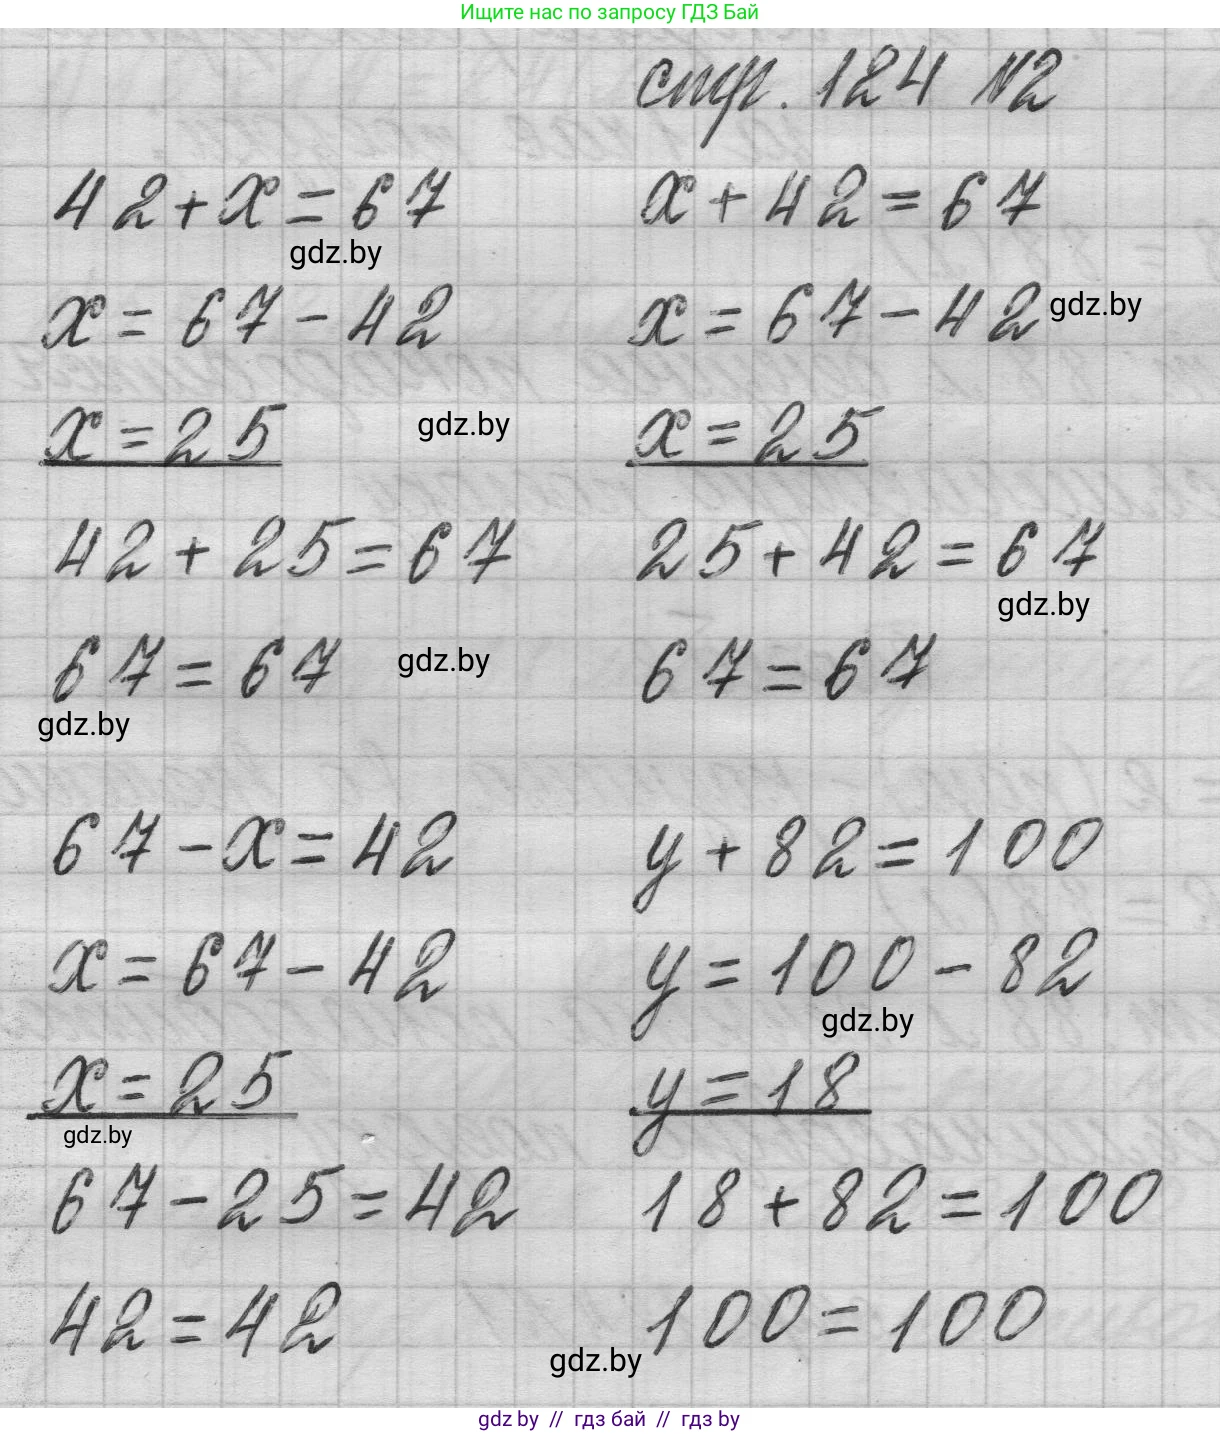 Ищите нас по запросу ГДЗ Бай
стр. 124 №2
42+x=67
x+42=67
gdz.by
x=67-42
x=67-42
gdz.by
x=25
gdz.by
x=25
42+25=67
25+42=67
gdz.by
67=67
gdz.by
67=67
gdz.by
67-x=42
y+82=100
x=67-42
y=100-82
gdz.by
x=25
y=18
gdz.by
67-25=42
18+82=100
42=42
100=100
gdz.by
gdz.by // гдз бай // гдз by